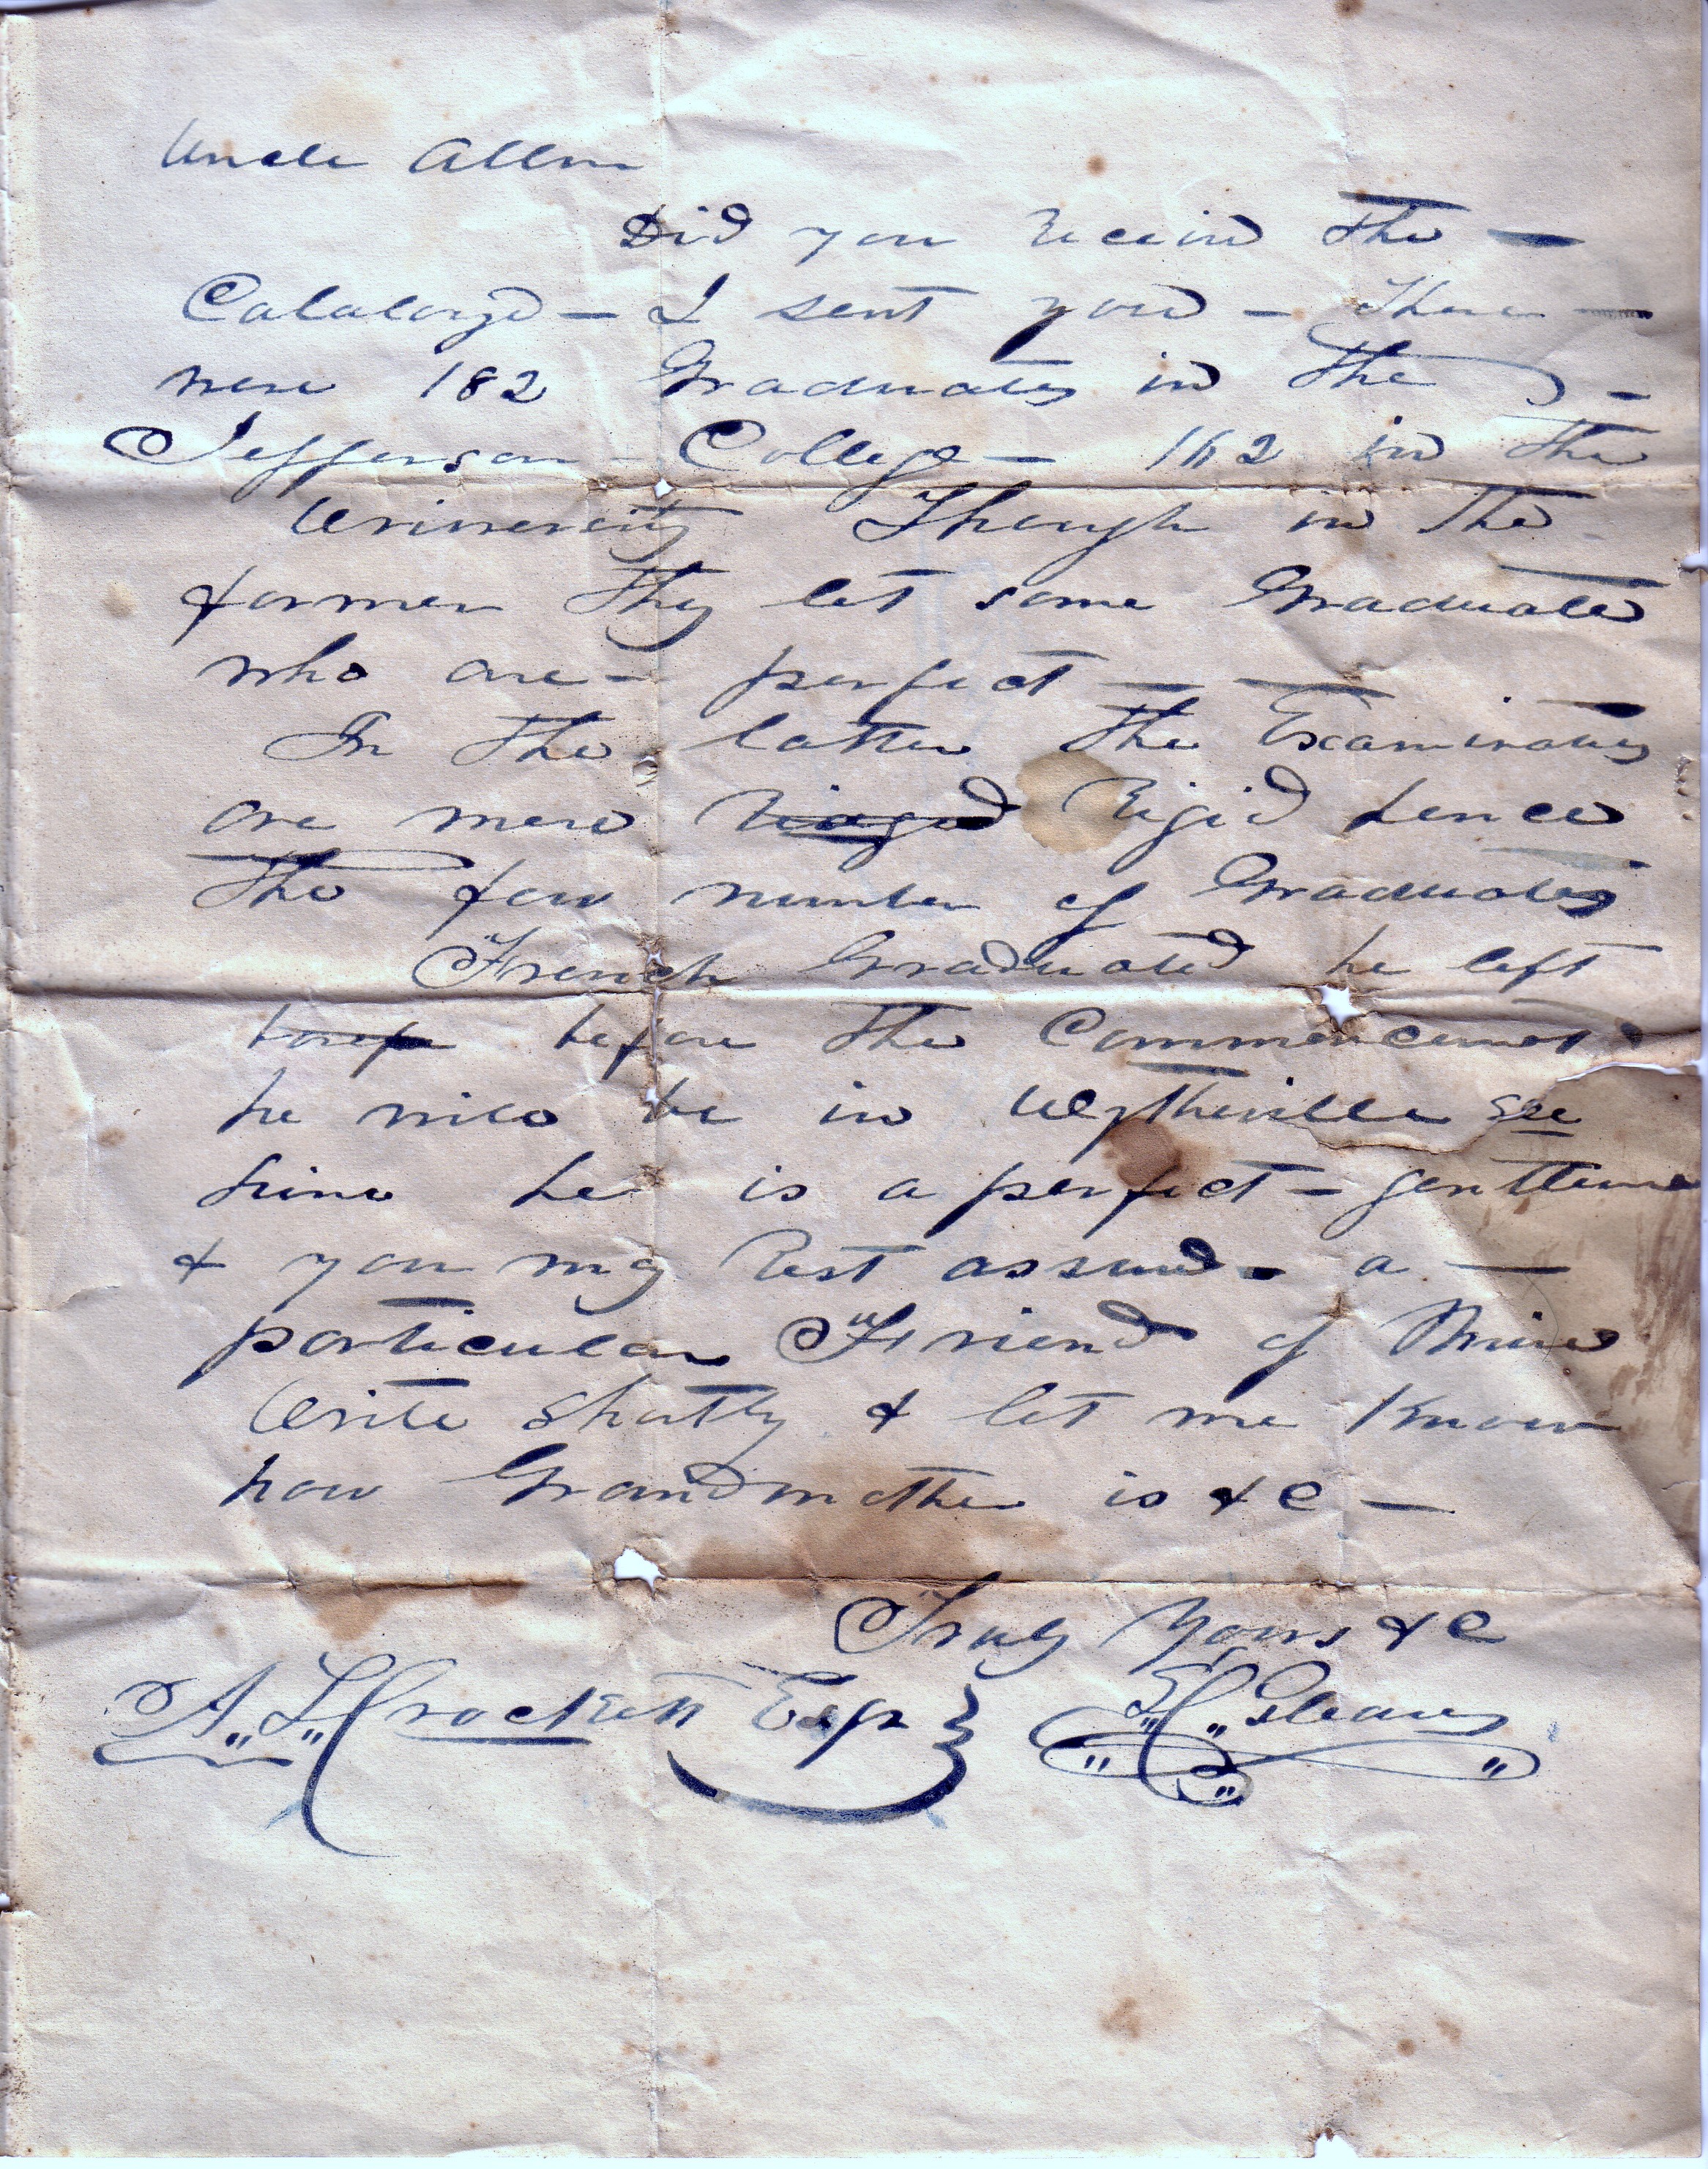 Uncle Allen
Did you Receive the —
Catalouge — I sent you — There —
were 182 Graduates in The —
Jefferson — College — 162 in the
University Though in The
former They let some Graduate
who are — perfect — —
In The latter The Examinations
are more Riged Rigid hence
The few number of Graduates
French Graduated he left
before The Commencement
he will be in Wytheville see
him he is a perfect — gentleman
& you my Rest assured — a —
particular Friend of Mine
Write Shortly & let me Know
how Grandmother is & C —
Truly Yours & C
A. L. Crockett Esqr } E C Gleaves